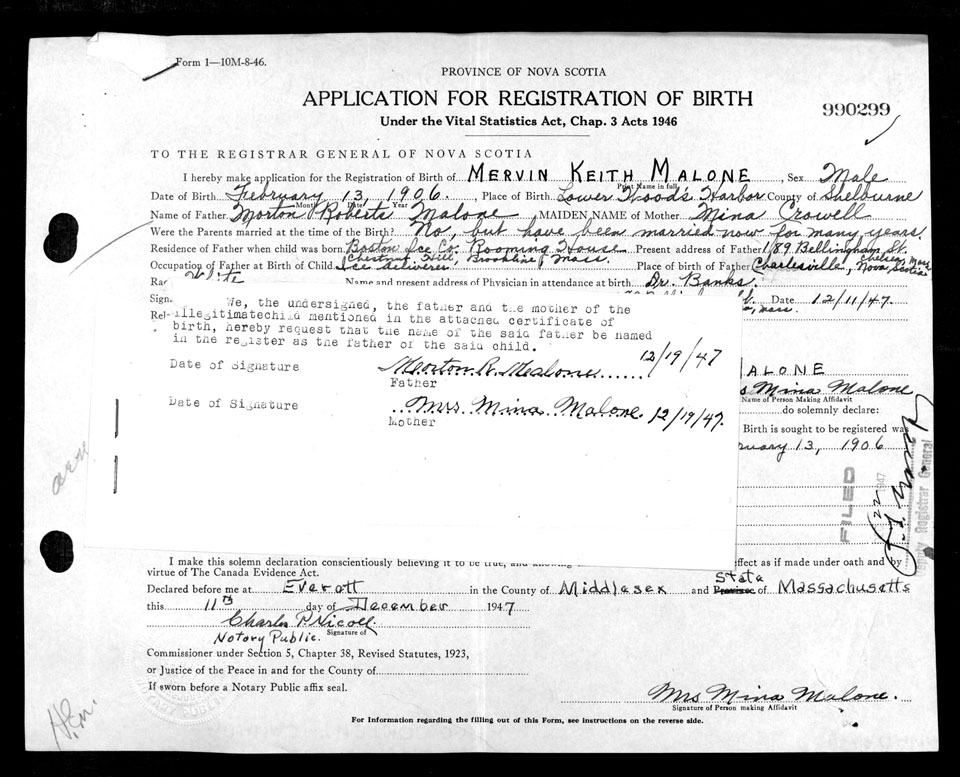 Form 1—10M-8-46.
PROVINCE OF NOVA SCOTIA
APPLICATION FOR REGISTRATION OF BIRTH
990299
Under the Vital Statistics Act, Chap. 3 Acts 1946
TO THE REGISTRAR GENERAL OF NOVA SCOTIA
I hereby make application for the Registration of Birth of MERVIN KEITH MALONE, Sex Male
Print Name in full
Date of Birth February 13, 1906, Place of Birth Lower Wood's Harbor County of Shelburne
Month Date Year
Name of Father Morton Roberts Malone, MAIDEN NAME of Mother Mina Crowell
Were the Parents married at the time of the Birth? No, but have been married now for many years.
Residence of Father when child was born Boston Ice Co. Rooming House Present address of Father 189 Bellingham St.
Chestnut Hill, Brookline, Mass. Chelsea, Mass
Occupation of Father at Birth of Child Ice deliverer Place of Birth of Father Charlesville, Nova Scotia
Name and present address of Physician in attendance at birth Dr. Banks.
Sign Date 12/11/47
Rel- Mass.
We, the undersigned, the father and the mother of the
illegitimatechild mentioned in the attached certificate of
birth, hereby request that the name of the said father be named
in the register as the father of the said child.
Date of Signature Morton R. Malone...... 12/19/47
Father
Date of Signature ...Mrs Mina Malone 12/19/47.
Mother
MALONE
s Mina Malone
Name of Person Making Affidavit
do solemnly declare:
Birth is sought to be registered was
ruary 13, 1906
FILED
22 1947
Registrar General
I make this solemn declaration conscientiously believing it to be true, and knowing effect as if made under oath and by
virtue of The Canada Evidence Act.
Declared before me at Everett in the County of Middlesex and State Province of Massachusetts
this 11th day of December 1947
Charles P. Nicoll
Notary Public. Signature of
Commissioner under Section 5, Chapter 38, Revised Statutes, 1923,
or Justice of the Peace in and for the County of
If sworn before a Notary Public affix seal.
Mrs Mina Malone.
Signature of Person making Affidavit
For Information regarding the filling out of this Form, see instructions on the reverse side.